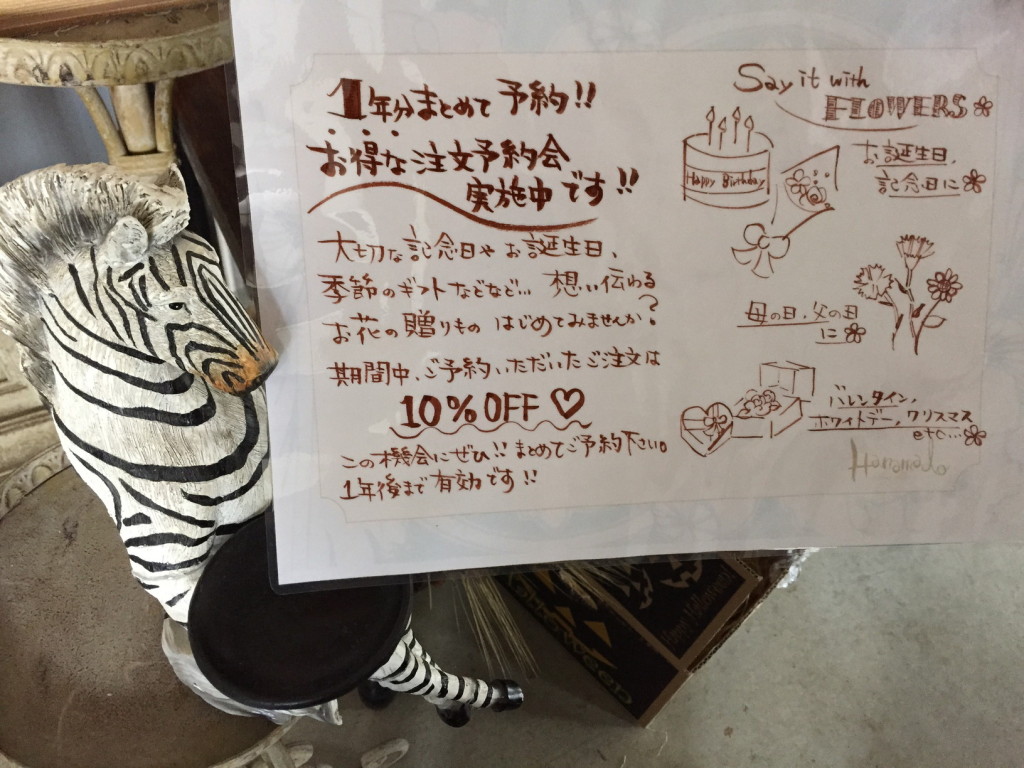 1年分まとめて予約!!
お得な注文予約会
実施中です!!
大切な記念日やお誕生日、
季節のギフトなどなど… 想い伝わる
お花の贈りもの はじめてみませんか?
期間中、ご予約いただいたご注文は
10%OFF♡
この機会にぜひ!! まとめてご予約下さい。
1年後まで有効です!!
Say it with
FLOWERS
Happy Birthday
お誕生日、
記念日に
母の日、父の日
に
バレンタイン、
ホワイトデー、クリスマス
etc...
Hanamado
Happy Halloween
Halloween